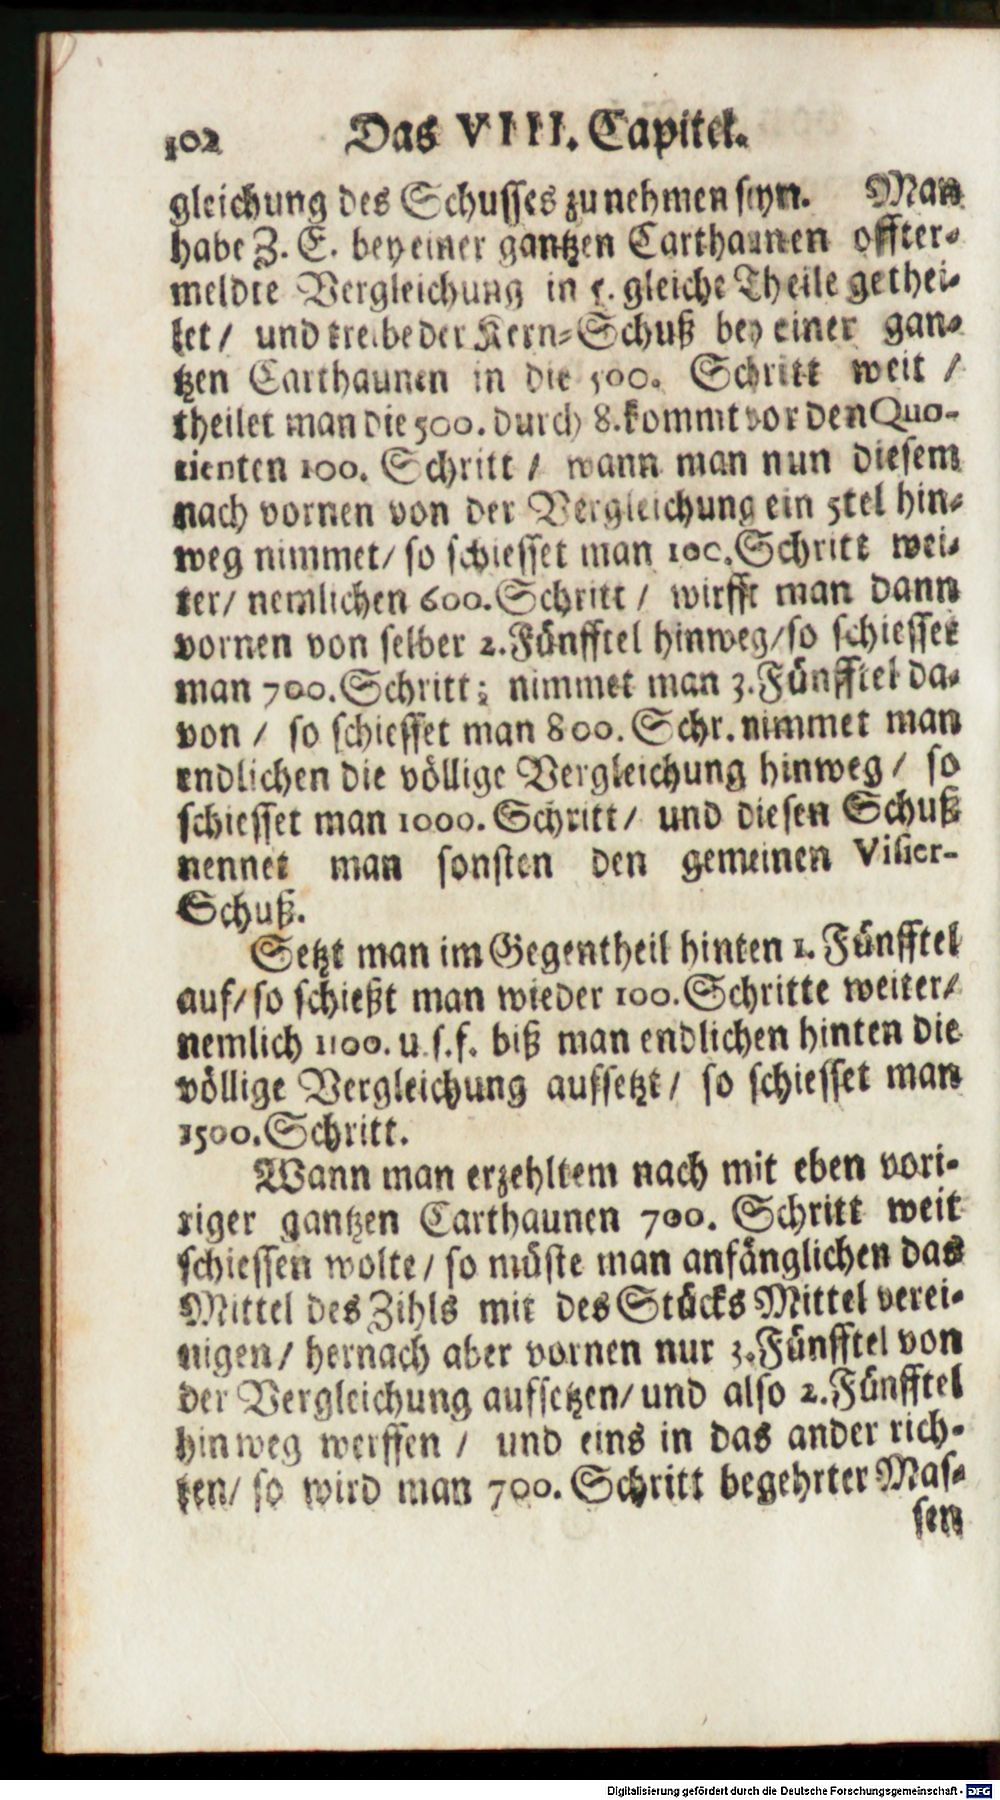 102 Das VIII. Capitel.
gleichung des Schusses zu nehmen seyn. Man
habe Z. E. bey einer gantzen Carthaunen offter-
meldte Vergleichung in 5. gleiche Theile gethei-
let / und treibe der Kern-Schuß bey einer gan-
tzen Carthaunen in die 500. Schritt weit /
theilet man die 500. durch 8. kommt vor den Quo-
tienten 100. Schritt / wann man nun diesem
nach vornen von der Vergleichung ein 5tel hin-
weg nimmet / so schiesset man 100. Schritt wei-
ter / nemlichen 600. Schritt / wirfft man dann
vornen von selber 2. Fünfftel hinweg / so schiesset
man 700. Schritt; nimmet man 3. Fünfftel da-
von / so schiesset man 800. Schr. nimmet man
endlichen die völlige Vergleichung hinweg / so
schiesset man 1000. Schritt / und diesen Schuß
nennet man sonsten den gemeinen Visier-
Schuß.
Setzt man im Gegentheil hinten 1. Fünfftel
auf / so schießt man wieder 100. Schritte weiter /
nemlich 1100. u. s. f. biß man endlichen hinten die
völlige Vergleichung aufsetzt / so schiesset man
1500. Schritt.
Wann man erzehltem nach mit eben vori-
riger gantzen Carthaunen 700. Schritt weit
schiessen wolte / so müste man anfänglichen das
Mittel des Zihls mit des Stücks Mittel verei-
nigen / hernach aber vornen nur 3. Fünfftel von
der Vergleichung aufsetzen / und also 2. Fünfftel
hinweg werffen / und eins in das ander rich-
ten / so wird man 700. Schritt begehrter Mas-
sen
Digitalisierung gefördert durch die Deutsche Forschungsgemeinschaft - DFG